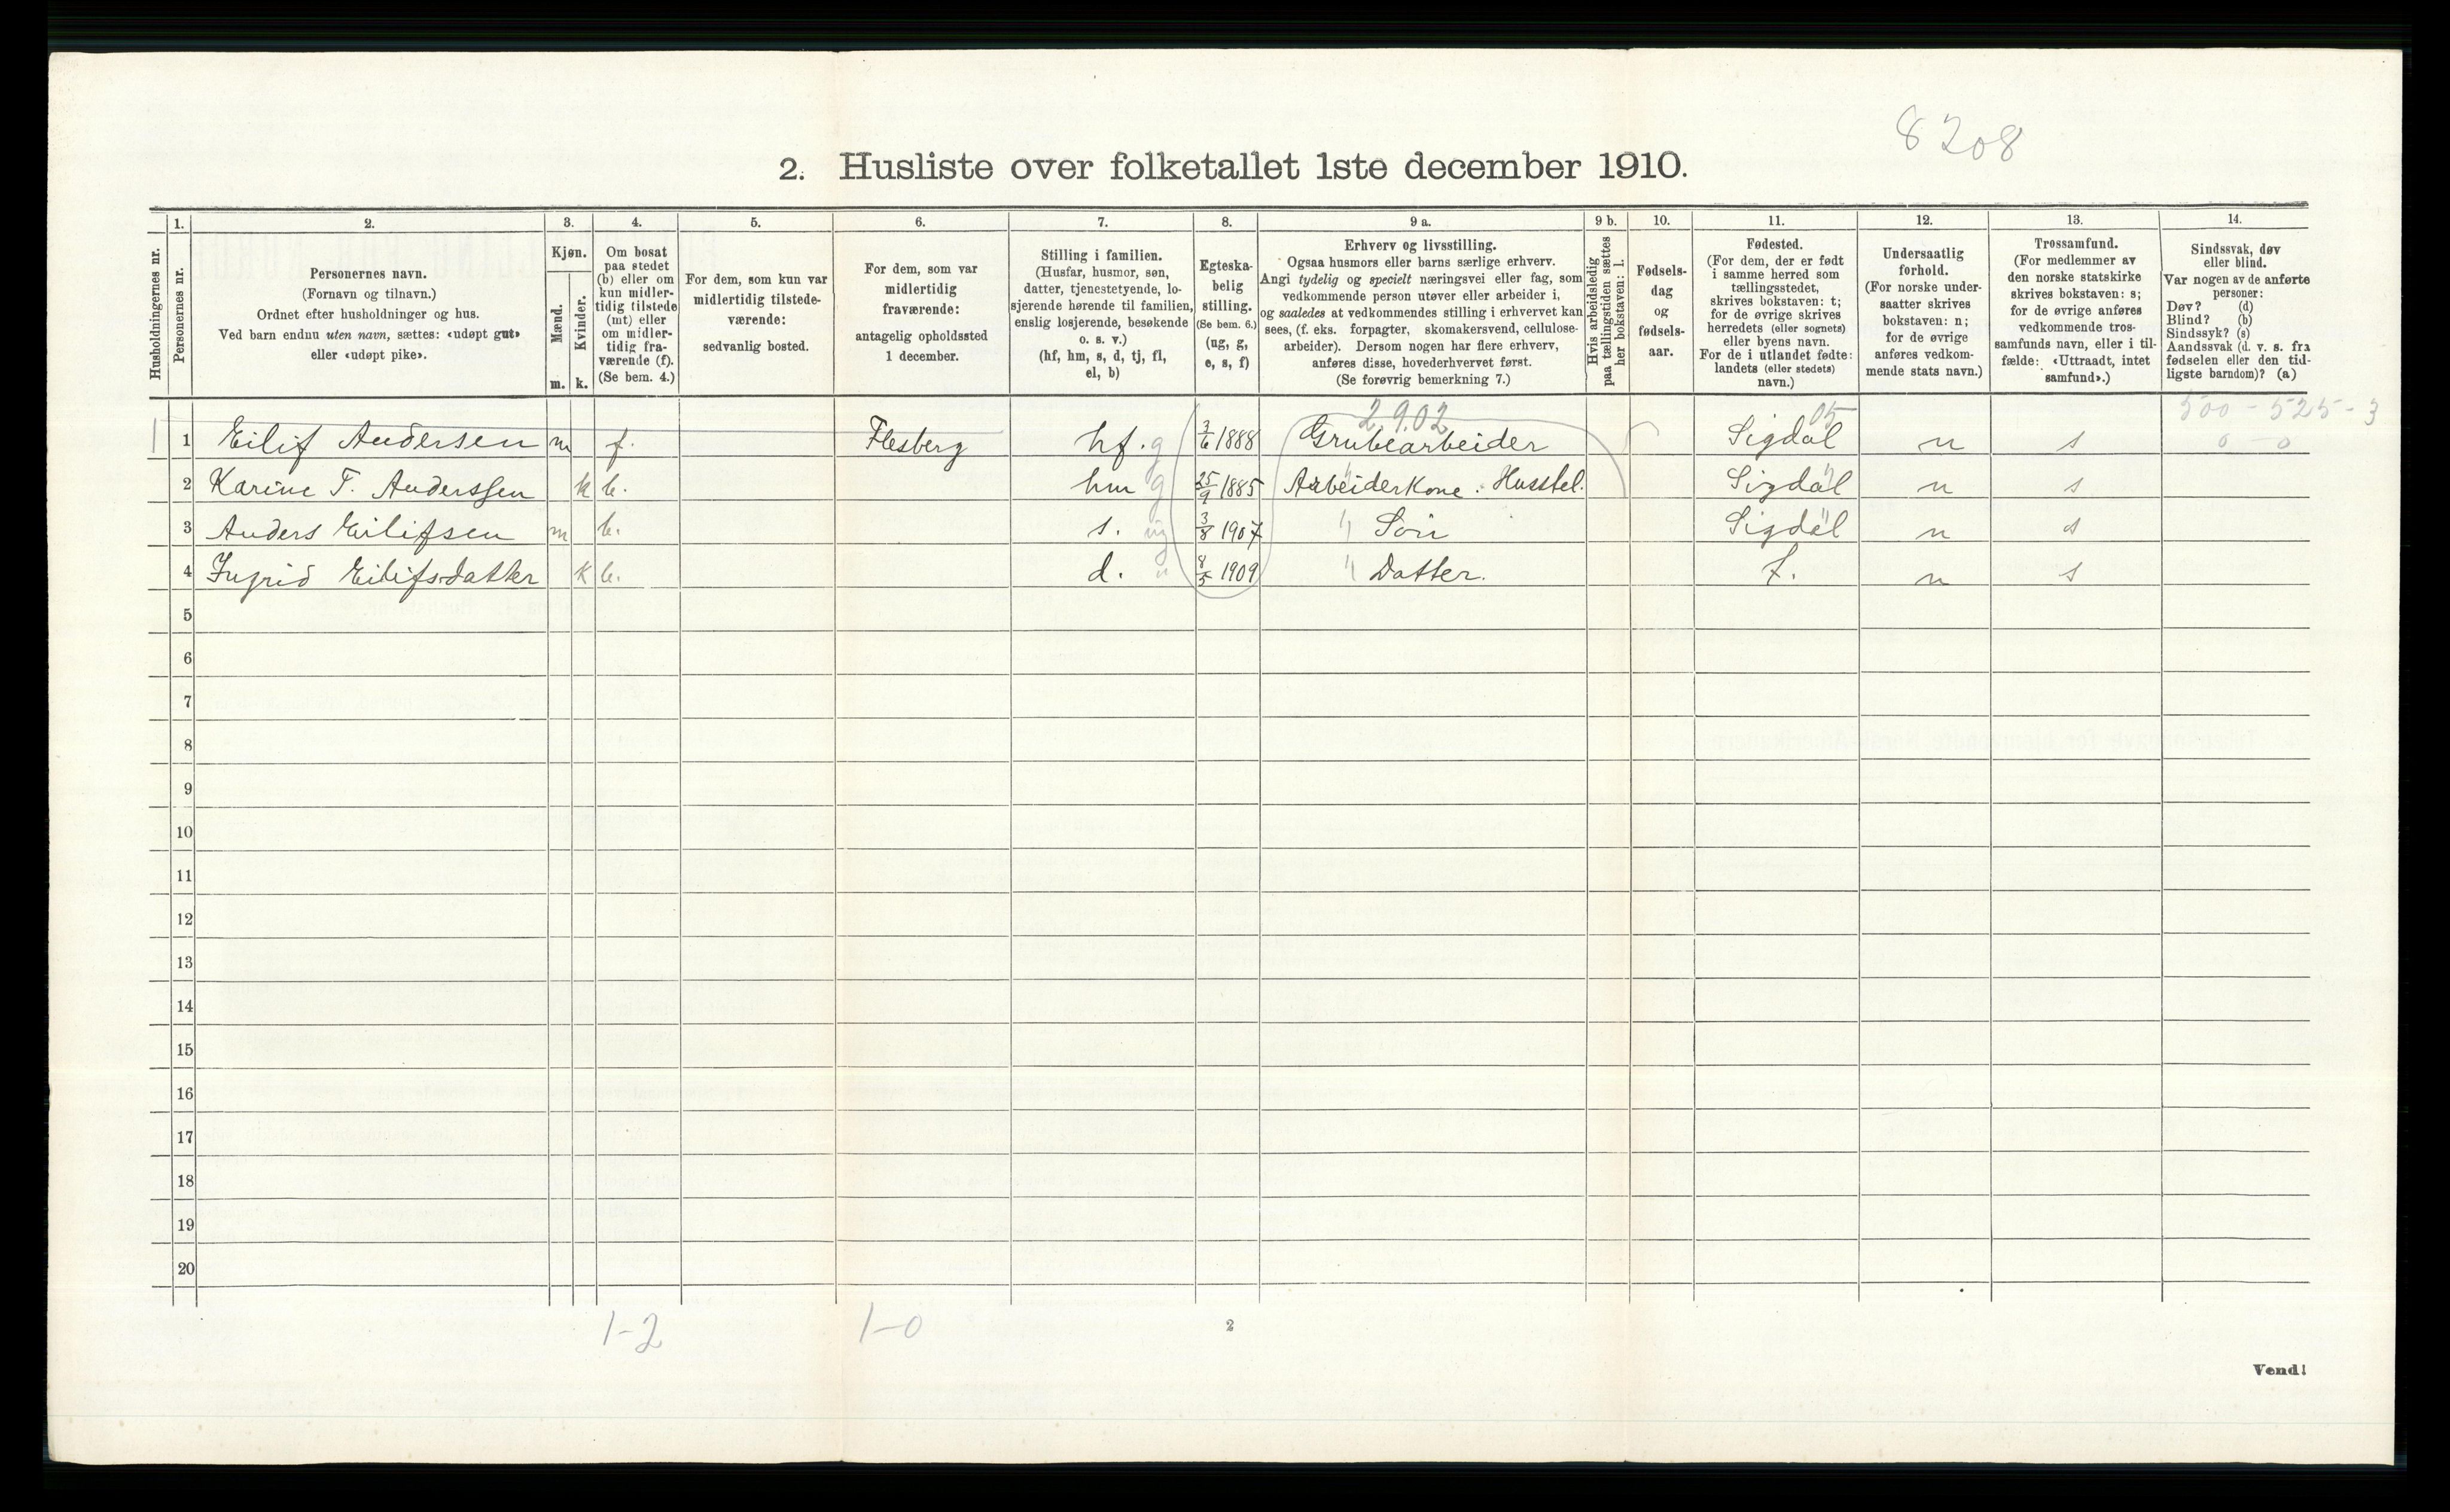 8208
2. Husliste over folketallet 1ste december 1910.
Husholdningernes nr.
1.
Personernes nr.
2.
Personernes navn.
(Fornavn og tilnavn.)
Ordnet efter husholdninger og hus.
Ved barn endnu uten navn, sættes: «udøpt gut»
eller «udøpt pike».
3.
Kjøn.
Mænd.
Kvinder.
m. k.
4.
Om bosat
paa stedet
(b) eller om
kun midler-
tidig tilstede
(mt) eller
om midler-
tidig fra-
værende (f).
(Se bem. 4.)
5.
For dem, som kun var
midlertidig tilstede-
værende:
sedvanlig bosted.
6.
For dem, som var
midlertidig
fraværende:
antagelig opholdssted
1 december.
7.
Stilling i familien.
(Husfar, husmor, søn,
datter, tjenestetyende, lo-
sjerende hørende til familien,
enslig losjerende, besøkende
o. s. v.)
(hf, hm, s, d, tj, fl,
el, b)
8.
Egteska-
belig
stilling.
(Se bem. 6.)
(ug, g,
e, s, f)
9 a.
Erhverv og livsstilling.
Ogsaa husmors eller barns særlige erhverv.
Angi tydelig og specielt næringsvei eller fag, som
vedkommende person utøver eller arbeider i,
og saaledes at vedkommendes stilling i erhvervet kan
sees, (f. eks. forpagter, skomakersvend, cellulose-
arbeider). Dersom nogen har flere erhverv,
anføres disse, hovederhvervet først.
(Se forøvrig bemerkning 7.)
9 b.
Hvis arbeidsledig
paa tællingstiden sættes
her bokstaven: l.
10.
Fødsels-
dag
og
fødsels-
aar.
11.
Fødested.
(For dem, der er født
i samme herred som
tællingsstedet,
skrives bokstaven: t;
for de øvrige skrives
herredets (eller sognets)
eller byens navn.
For de i utlandet fødte:
landets (eller stedets)
navn.)
12.
Undersaatlig
forhold.
(For norske under-
saatter skrives
bokstaven: n;
for de øvrige
anføres vedkom-
mende stats navn.)
13.
Trossamfund.
(For medlemmer av
den norske statskirke
skrives bokstaven: s;
for de øvrige anføres
vedkommende tros-
samfunds navn, eller i til-
fælde: «Uttraadt, intet
samfund».)
14.
Sindssvak, døv
eller blind.
Var nogen av de anførte
personer:
Døv? (d)
Blind? (b)
Sindssyk? (s)
Aandssvak (d. v. s. fra
fødselen eller den tid-
ligste barndom)? (a)
2.9.02 05 500 - 525 - 3
1 1 Eilif Andersen m f. Flesberg hf. g 3/6 1888 Grubearbeider Sigdal n s 0 - 0
2 Karine T. Anderssen k b. hm g 25/9 1885 Arbeiderkone. Husstel. Sigdal n s
3 Anders Eilifsen m b. s. ug 3/8 1907 " Søn Sigdal n s
4 Ingrid Eilifsdatter k b. d. " 8/5 1909 " Datter. t. n s
5
6
7
8
9
10
11
12
13
14
15
16
17
18
19
20
1-2 1-0
2
Vend!